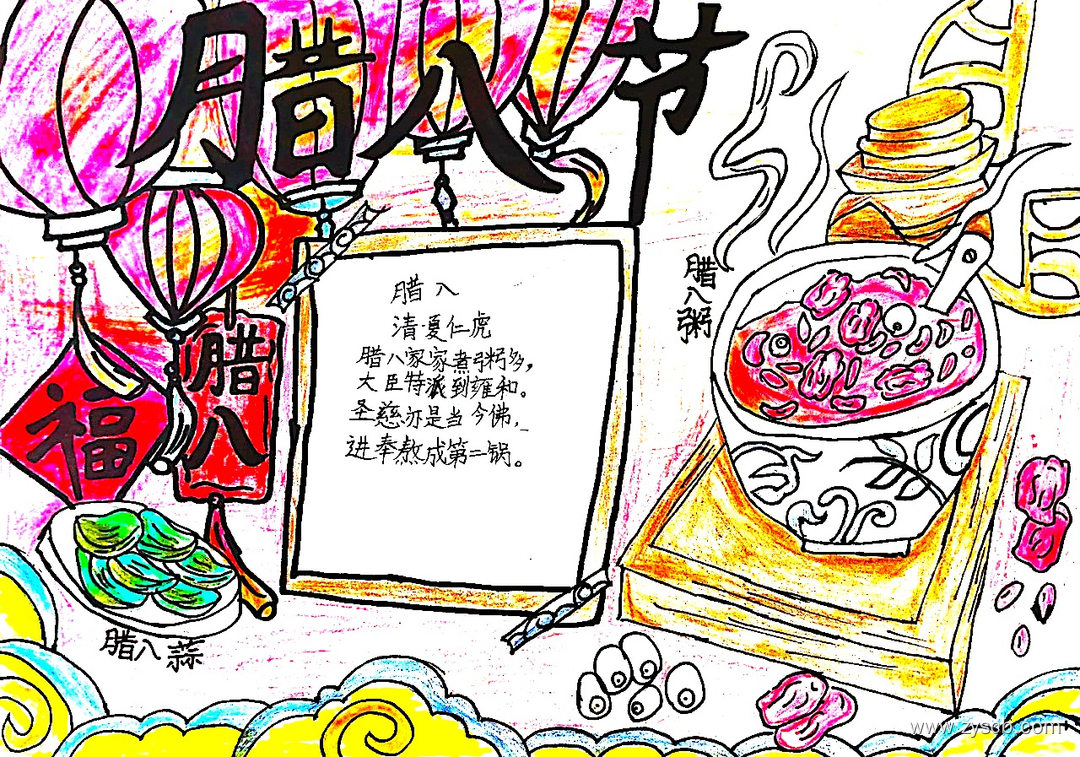 腊八节
腊八
清夏仁虎
腊八家家煮粥多,
大臣特派到雍和。
圣慈亦是当今佛,
进奉熬成第二锅。
腊八粥
腊八
福
腊八蒜
www.zysdb.com